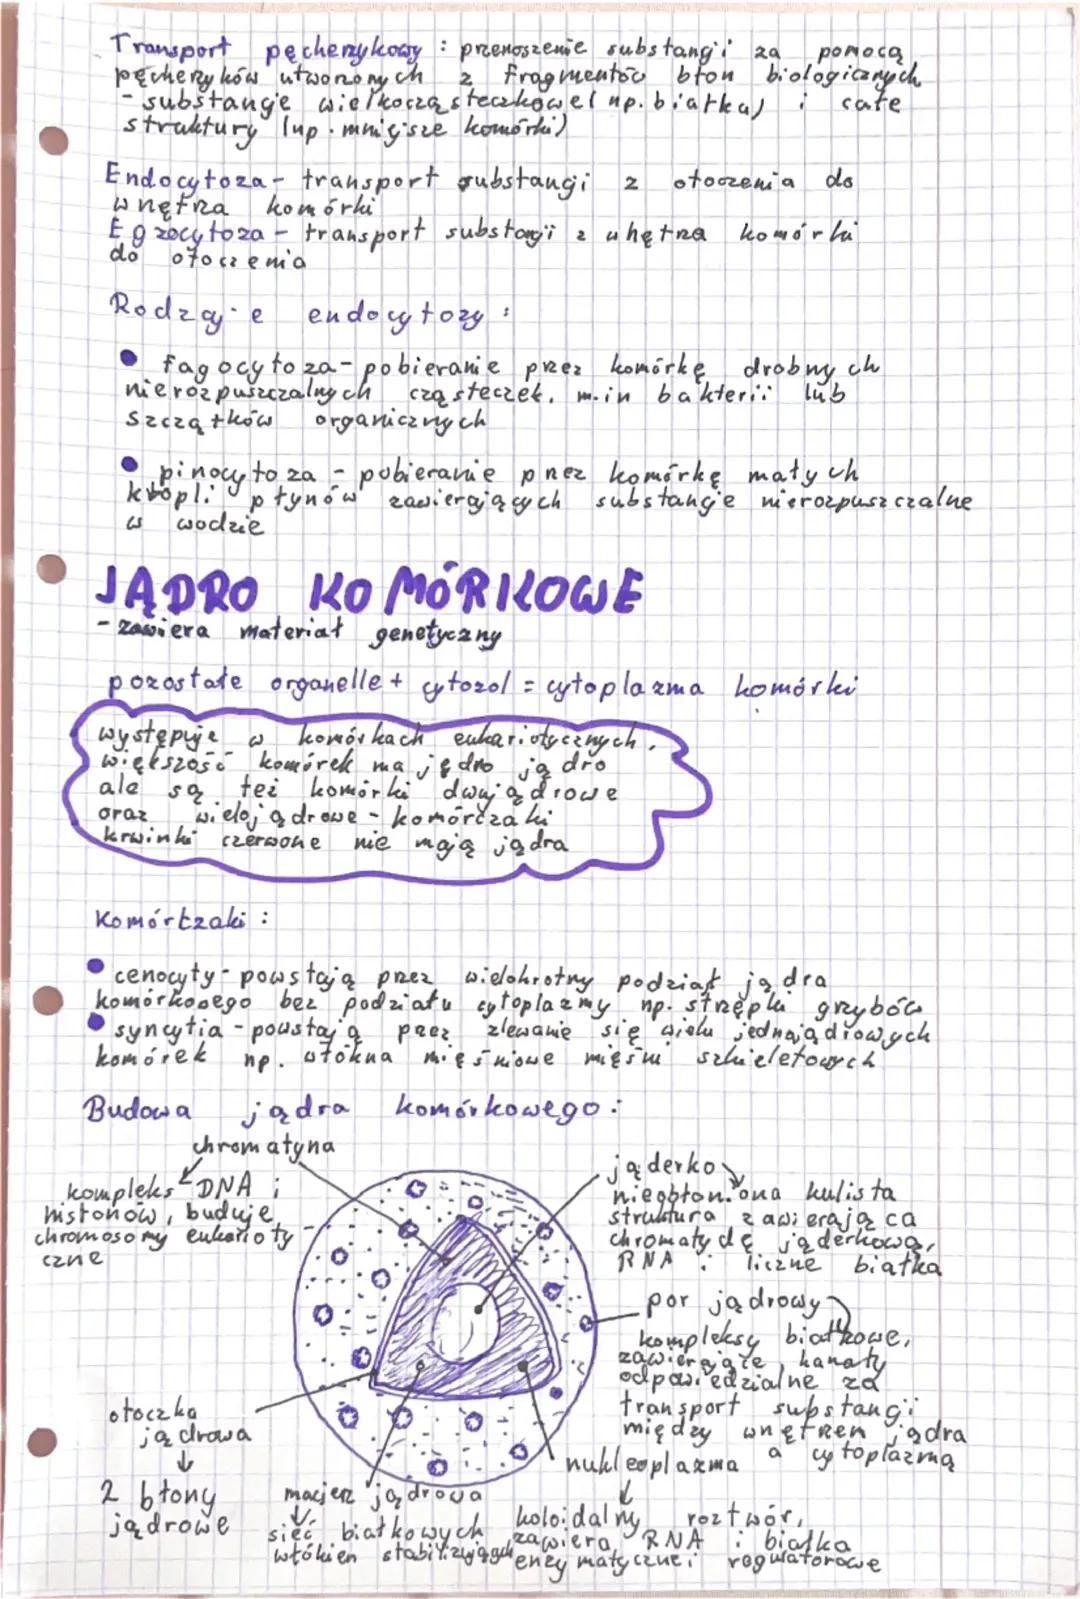 Transport pęcherzykowy : przenoszenie substancji za pomocą
pęcherzyków utworzonych z fragmentów błon biologicznych
- substancje wielkocząsteczkowe (np. białka) i całe
struktury (np. mniejsze komórki)
Endocytoza - transport substancji z otoczenia do
wnętrza komórki
Egzocytoza - transport substancji z wnętrza komórki
do otoczenia
Rodzaje endocytozy :
• fagocytoza - pobieranie przez komórkę drobnych
nierozpuszczalnych cząsteczek, m.in bakterii lub
szczątków organicznych
• pinocytoza - pobieranie przez komórkę małych
kropli płynów zawierających substancje nierozpuszczalne
w wodzie
JĄDRO KOMÓRKOWE
- zawiera materiał genetyczny
pozostałe organelle + cytozol = cytoplazma komórki
występuje w komórkach eukariotycznych,
większość komórek ma jedno jądro
ale są też komórki dwujądrowe
oraz wielojądrowe - komórczaki
krwinki czerwone nie mają jądra
Komórczaki :
• cenocyty - powstają przez wielokrotny podział jądra
komórkowego bez podziału cytoplazmy np. strzępki grzybów
• syncytia - powstają przez zlewanie się wielu jednojądrowych
komórek np. włókna mięśniowe mięśni szkieletowych
Budowa jądra komórkowego :
chromatyna
kompleks DNA i
histonów, buduje
chromosomy eukarioty
czne
jąderko
nieobłoniona kulista
struktura zawierająca
chromatydę jąderkową,
RNA i liczne białka
por jądrowy
kompleksy białkowe,
zawierające kanały
odpowiedzialne za
transport substancji
między wnętrzem jądra
a cytoplazmą
otoczka
jądrowa
2 błony
jądrowe
macierz jądrowa
sieć białkowych
włókien stabilizujących
nukleoplazma
koloidalny roztwór,
zawiera RNA i białka
enzymatyczne i regulatorowe